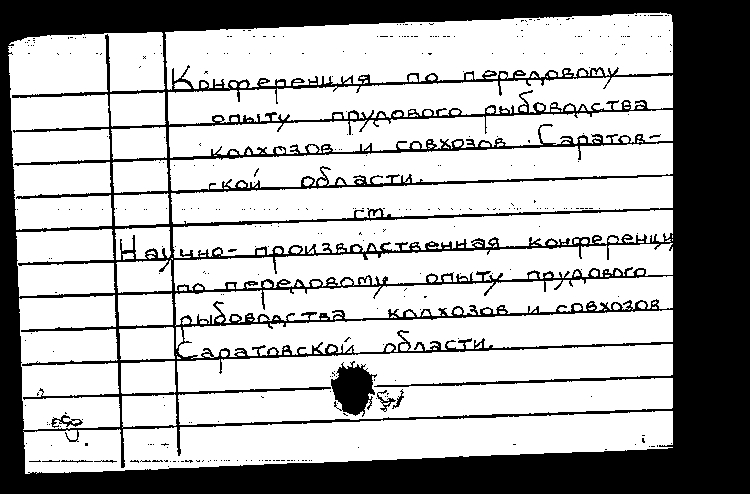 Конференция по передовому
опыту прудового рыбоводства
колхозов и совхозов Саратов-
ской области.
см.
Научно-производственная конференци
по передовому опыту прудового
рыбоводства колхозов и совхозов
Саратовской области.